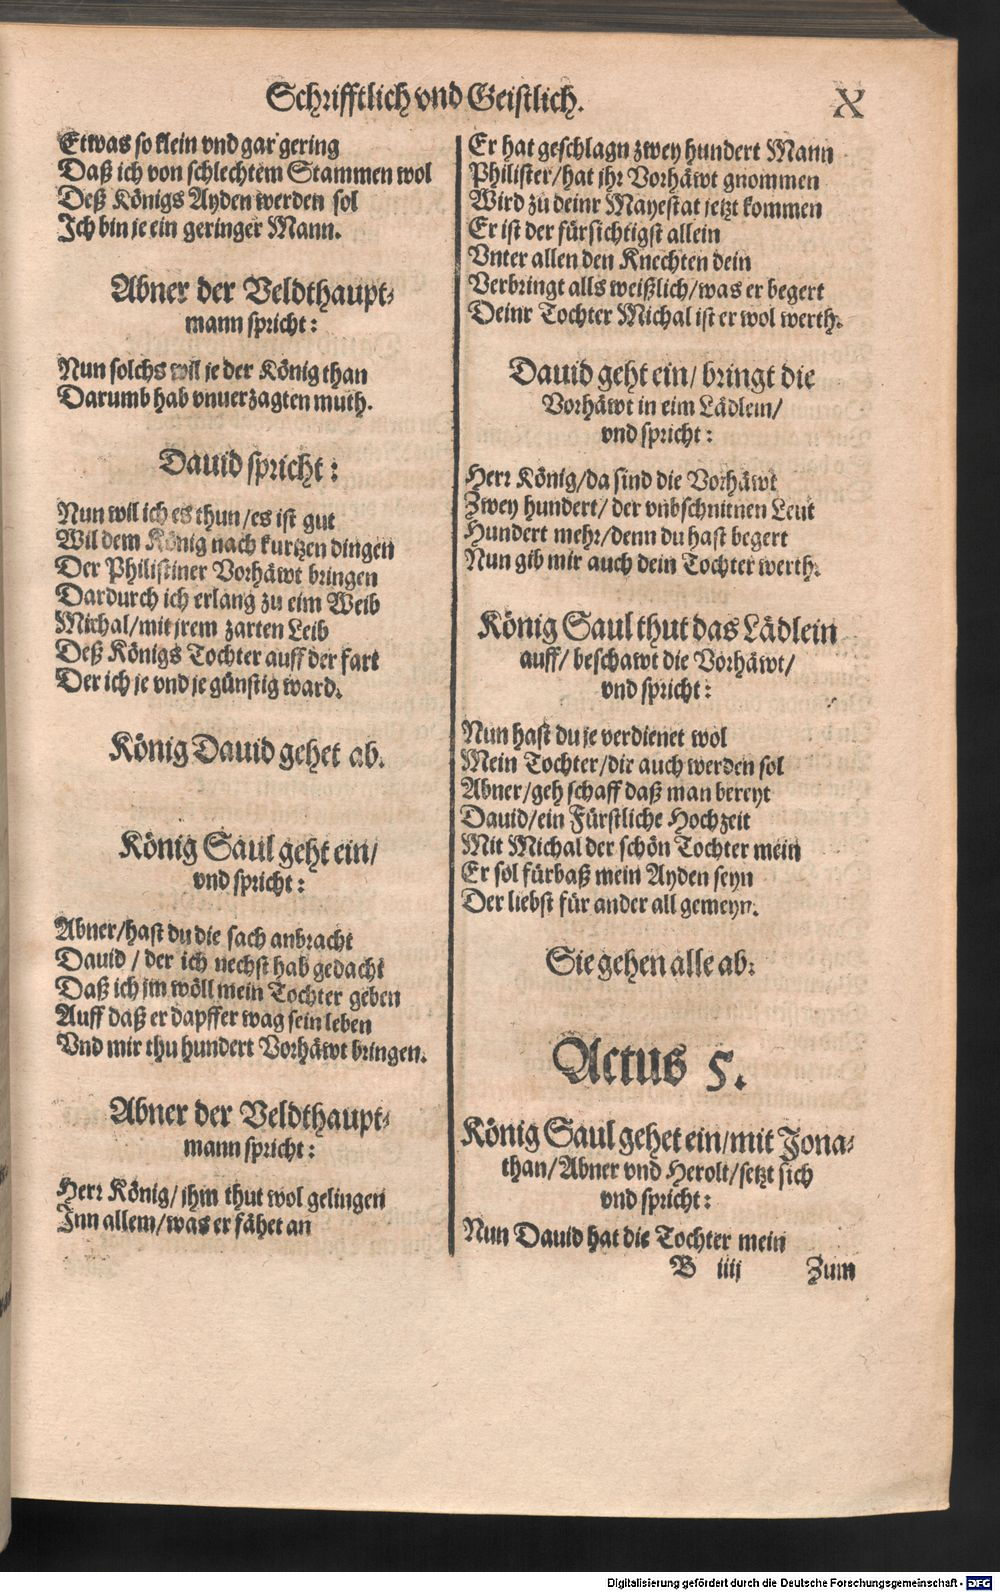 Schrifftlich vnd Geistlich. X
Etwas so klein vnd gar gering
Daß ich von schlechtem Stammen wol
Deß Königs Ayden werden sol
Ich bin je ein geringer Mann.
Abner der Veldthaupt-
mann spricht:
Nun solchs wil je der König than
Darumb hab vnuerzagten muth.
Dauid spricht:
Nun wil ich es thun/es ist gut
Wil dem König nach kurtzen dingen
Der Philistiner Vorhäwt bringen
Dardurch ich erlang zu eim Weib
Michal/mit jrem zarten Leib
Deß Königs Tochter auff der fart
Der ich je vnd je günstig ward.
König Dauid gehet ab.
König Saul geht ein/
vnd spricht:
Abner/hast du die sach anbracht
Dauid/der ich nechst hab gedacht
Daß ich jm wöll mein Tochter geben
Auff daß er dapffer wag sein leben
Vnd mir thu hundert Vorhäwt bringen.
Abner der Veldthaupt-
mann spricht:
Herr König/ihm thut wol gelingen
Inn allem/was er fähet an
Er hat geschlagn zwey hundert Mann
Philister/hat jhr Vorhäwt gnommen
Wird zu deinr Mayestat jetzt kommen
Er ist der fürsichtigst allein
Vnter allen den Knechten dein
Verbringt alls weißlich/was er begert
Deinr Tochter Michal ist er wol werth.
Dauid geht ein/bringt die
Vorhäwt in eim Lädlein/
vnd spricht:
Herr König/da sind die Vorhäwt
Zwey hundert/der vnbschnitnen Leut
Hundert mehr/denn du hast begert
Nun gib mir auch dein Tochter werth.
König Saul thut das Lädlein
auff/beschawt die Vorhäwt/
vnd spricht:
Nun hast du je verdienet wol
Mein Tochter/dir auch werden sol
Abner/geh schaff daß man bereyt
Dauid/ein Fürstliche Hochzeit
Mit Michal der schön Tochter mein
Er sol fürbaß mein Ayden seyn
Der liebst für ander all gemeyn.
Sie gehen alle ab.
Actus 5.
König Saul gehet ein/mit Jona-
than/Abner vnd Herolt/setzt sich
vnd spricht:
Nun Dauid hat die Tochter mein
B iiij Zum
Digitalisierung gefördert durch die Deutsche Forschungsgemeinschaft - DFG